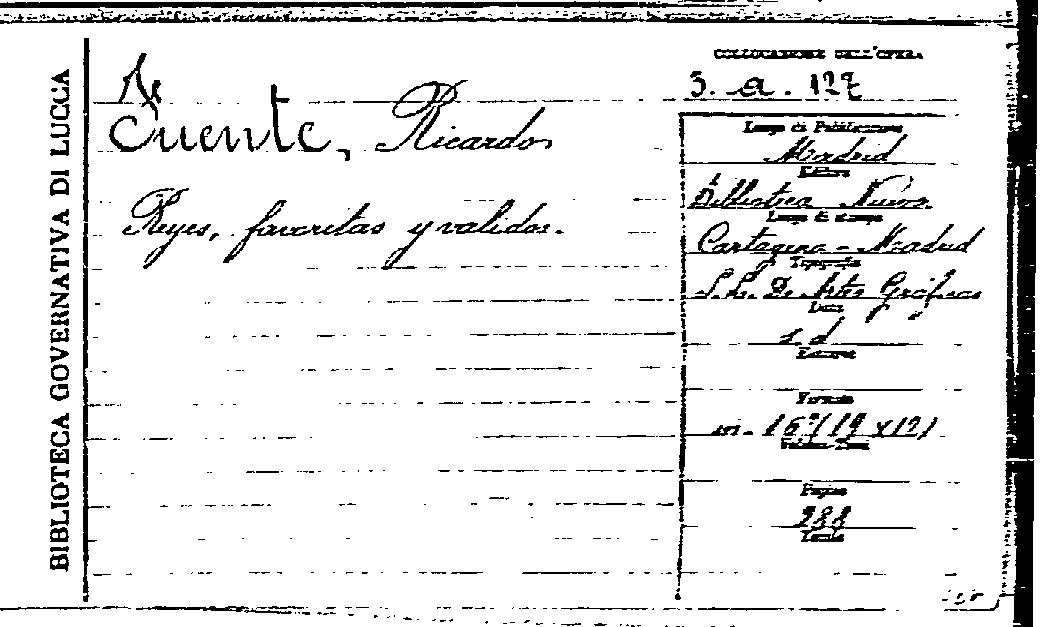 BIBLIOTECA GOVERNATIVA DI LUCCA
COLLOCAZIONE DELL'OPERA
3. a. 127
Fuente, Ricardo
Reyes, favoritas y validos.
Luogo di Pubblicazione
Madrid
Editore
Biblioteca Nueva.
Luogo di stampa
Cartagena - Madrid
Tipografia
S. L. De Artes Gráficas
Data
s. d
Formato
in - 16° (19 x 12)
Pagine
288